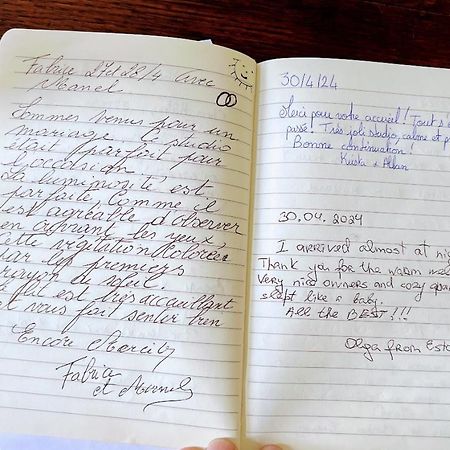 Fabrice 27 et 28/4 avec
Manel
Sommes venus pour un
mariage. Le studio
était parfait pour
l'occasion.
La luminosité est
parfaite, comme il
est agréable d'observer
en ouvrant les yeux,
cette végétation colorée
par les premiers
rayon de soleil.
est très accueillant
et vous fait sentir
Encore Merci
Fabrice
et Manel
30/4/24
Merci pour votre accueil! Tout s'
passé! Très joli studio, calme et p
Bonne continuation!
& Allan
30.04.2024
I arrived almost at nig
Thank you for the warm wel
very nice owners and cozy apar
slept like a baby.
All the BEST!!!
Olga from Esto